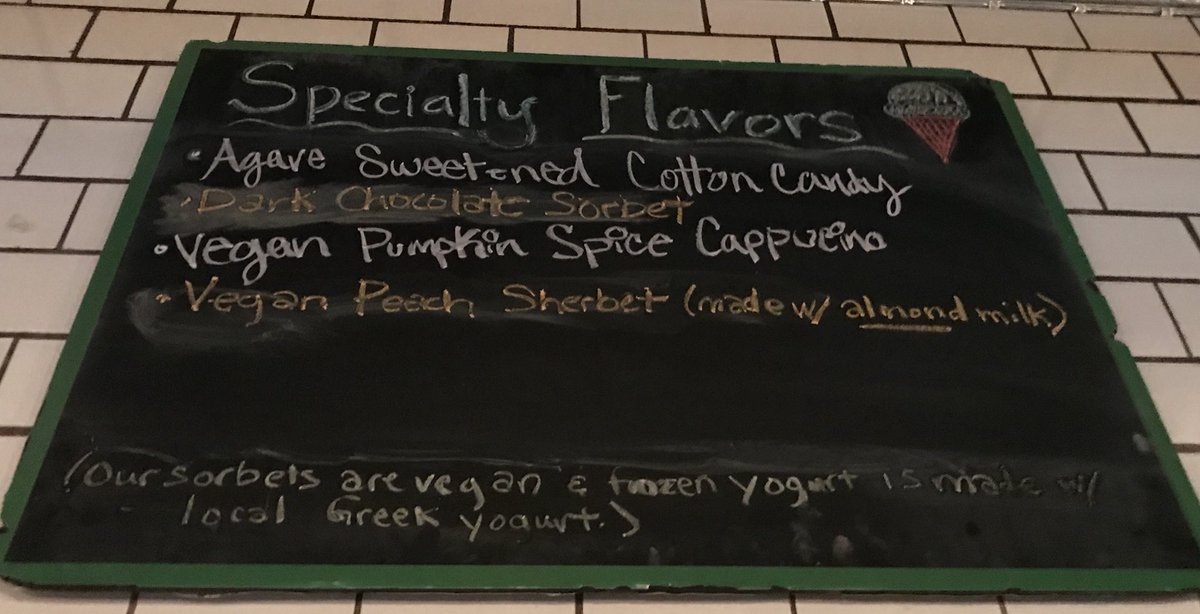 Specialty Flavors
• Agave Sweetened Cotton Candy
• Dark Chocolate Sorbet
• Vegan Pumpkin Spice Cappucino
• Vegan Peach Sherbet (made w/ almond milk)
(Our sorbets are vegan & frozen yogurt is made w/
local Greek yogurt.)